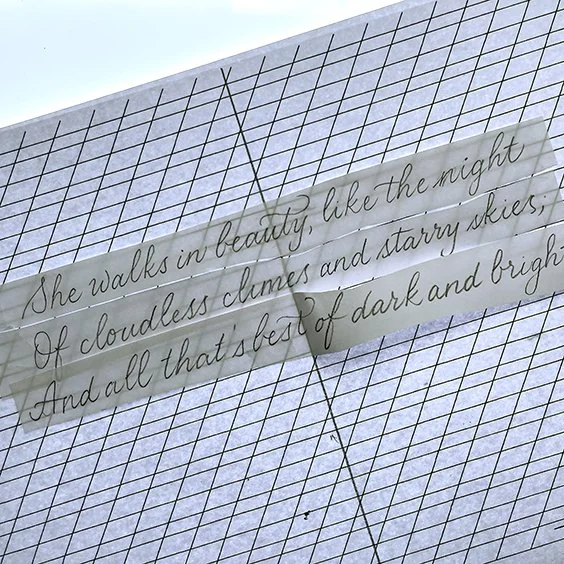 She walks in beauty, like the night
Of cloudless climes and starry skies;
And all that's best of dark and bright